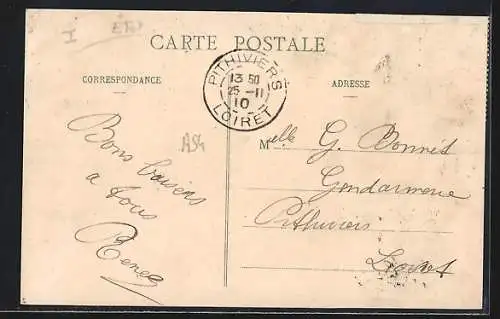 CARTE POSTALE
CORRESPONDANCE
ADRESSE
PITHIVIERS
13 50
25 - 11
10
LOIRET
Bons baisers
a tous
Renée
Melle G. Bonnet
Gendarmerie
Pithiviers
Loiret